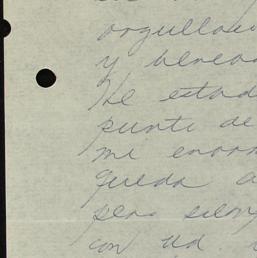 orgullos
y 
He estad
punto de
mi enorm
queda a
pero siem
con Ud